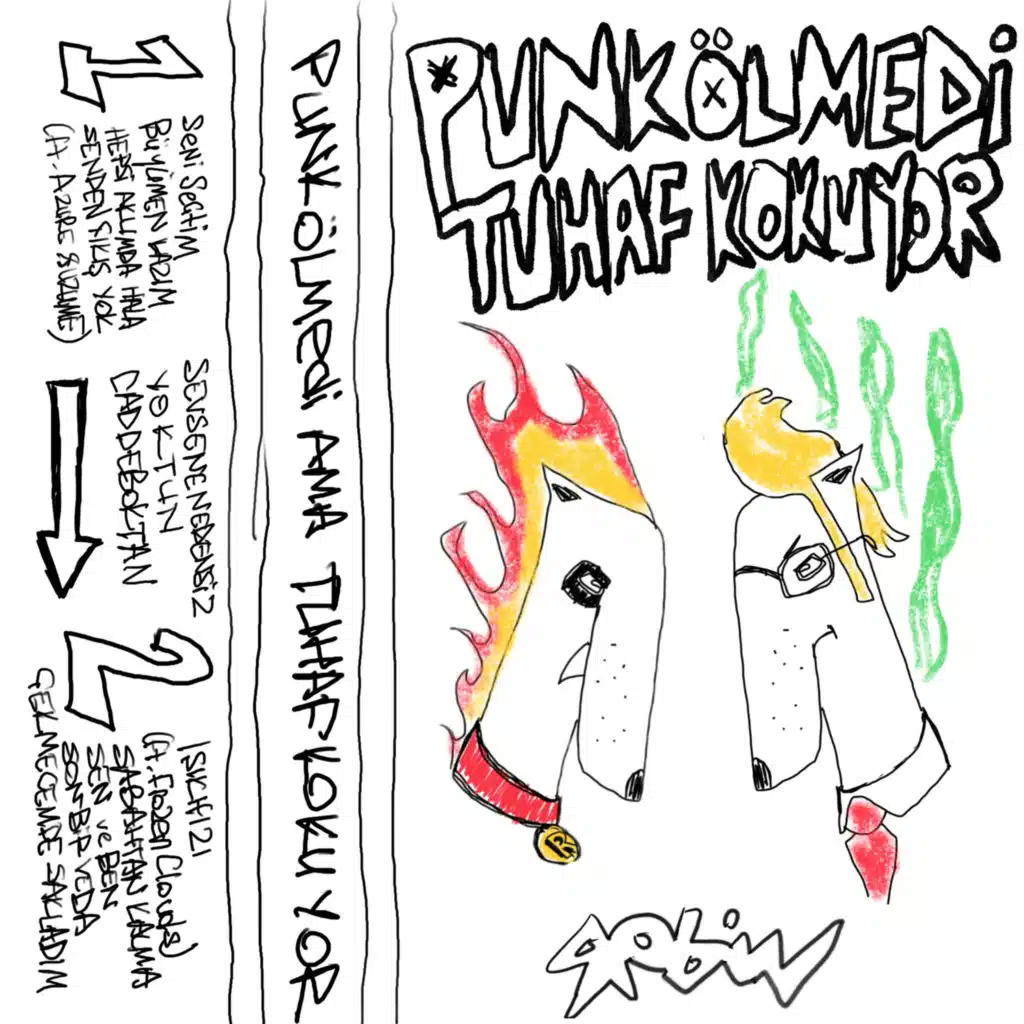 PUNK ÖLMEDİ
TUHAF KOKUYOR
PUNK ÖLMEDİ AMA TUHAF KOKUYOR
1
Seni Seçtim
Büyümen LAZIM
HEPSİ AKLIMDA HALA
SENDEN ÇIKIŞ YOK
(ft. AZURE SUZUME)
SEVSENE NEDENSİZ
YOKTUN
CADDEBOKTAN
2
IŞIK HIZI
(ft. Frozen Clouds)
SABAHTAN KALMA
SEN ve BEN
SON BİR VEDA
ÇEKMECEMDE SAKLADIM
R
robin